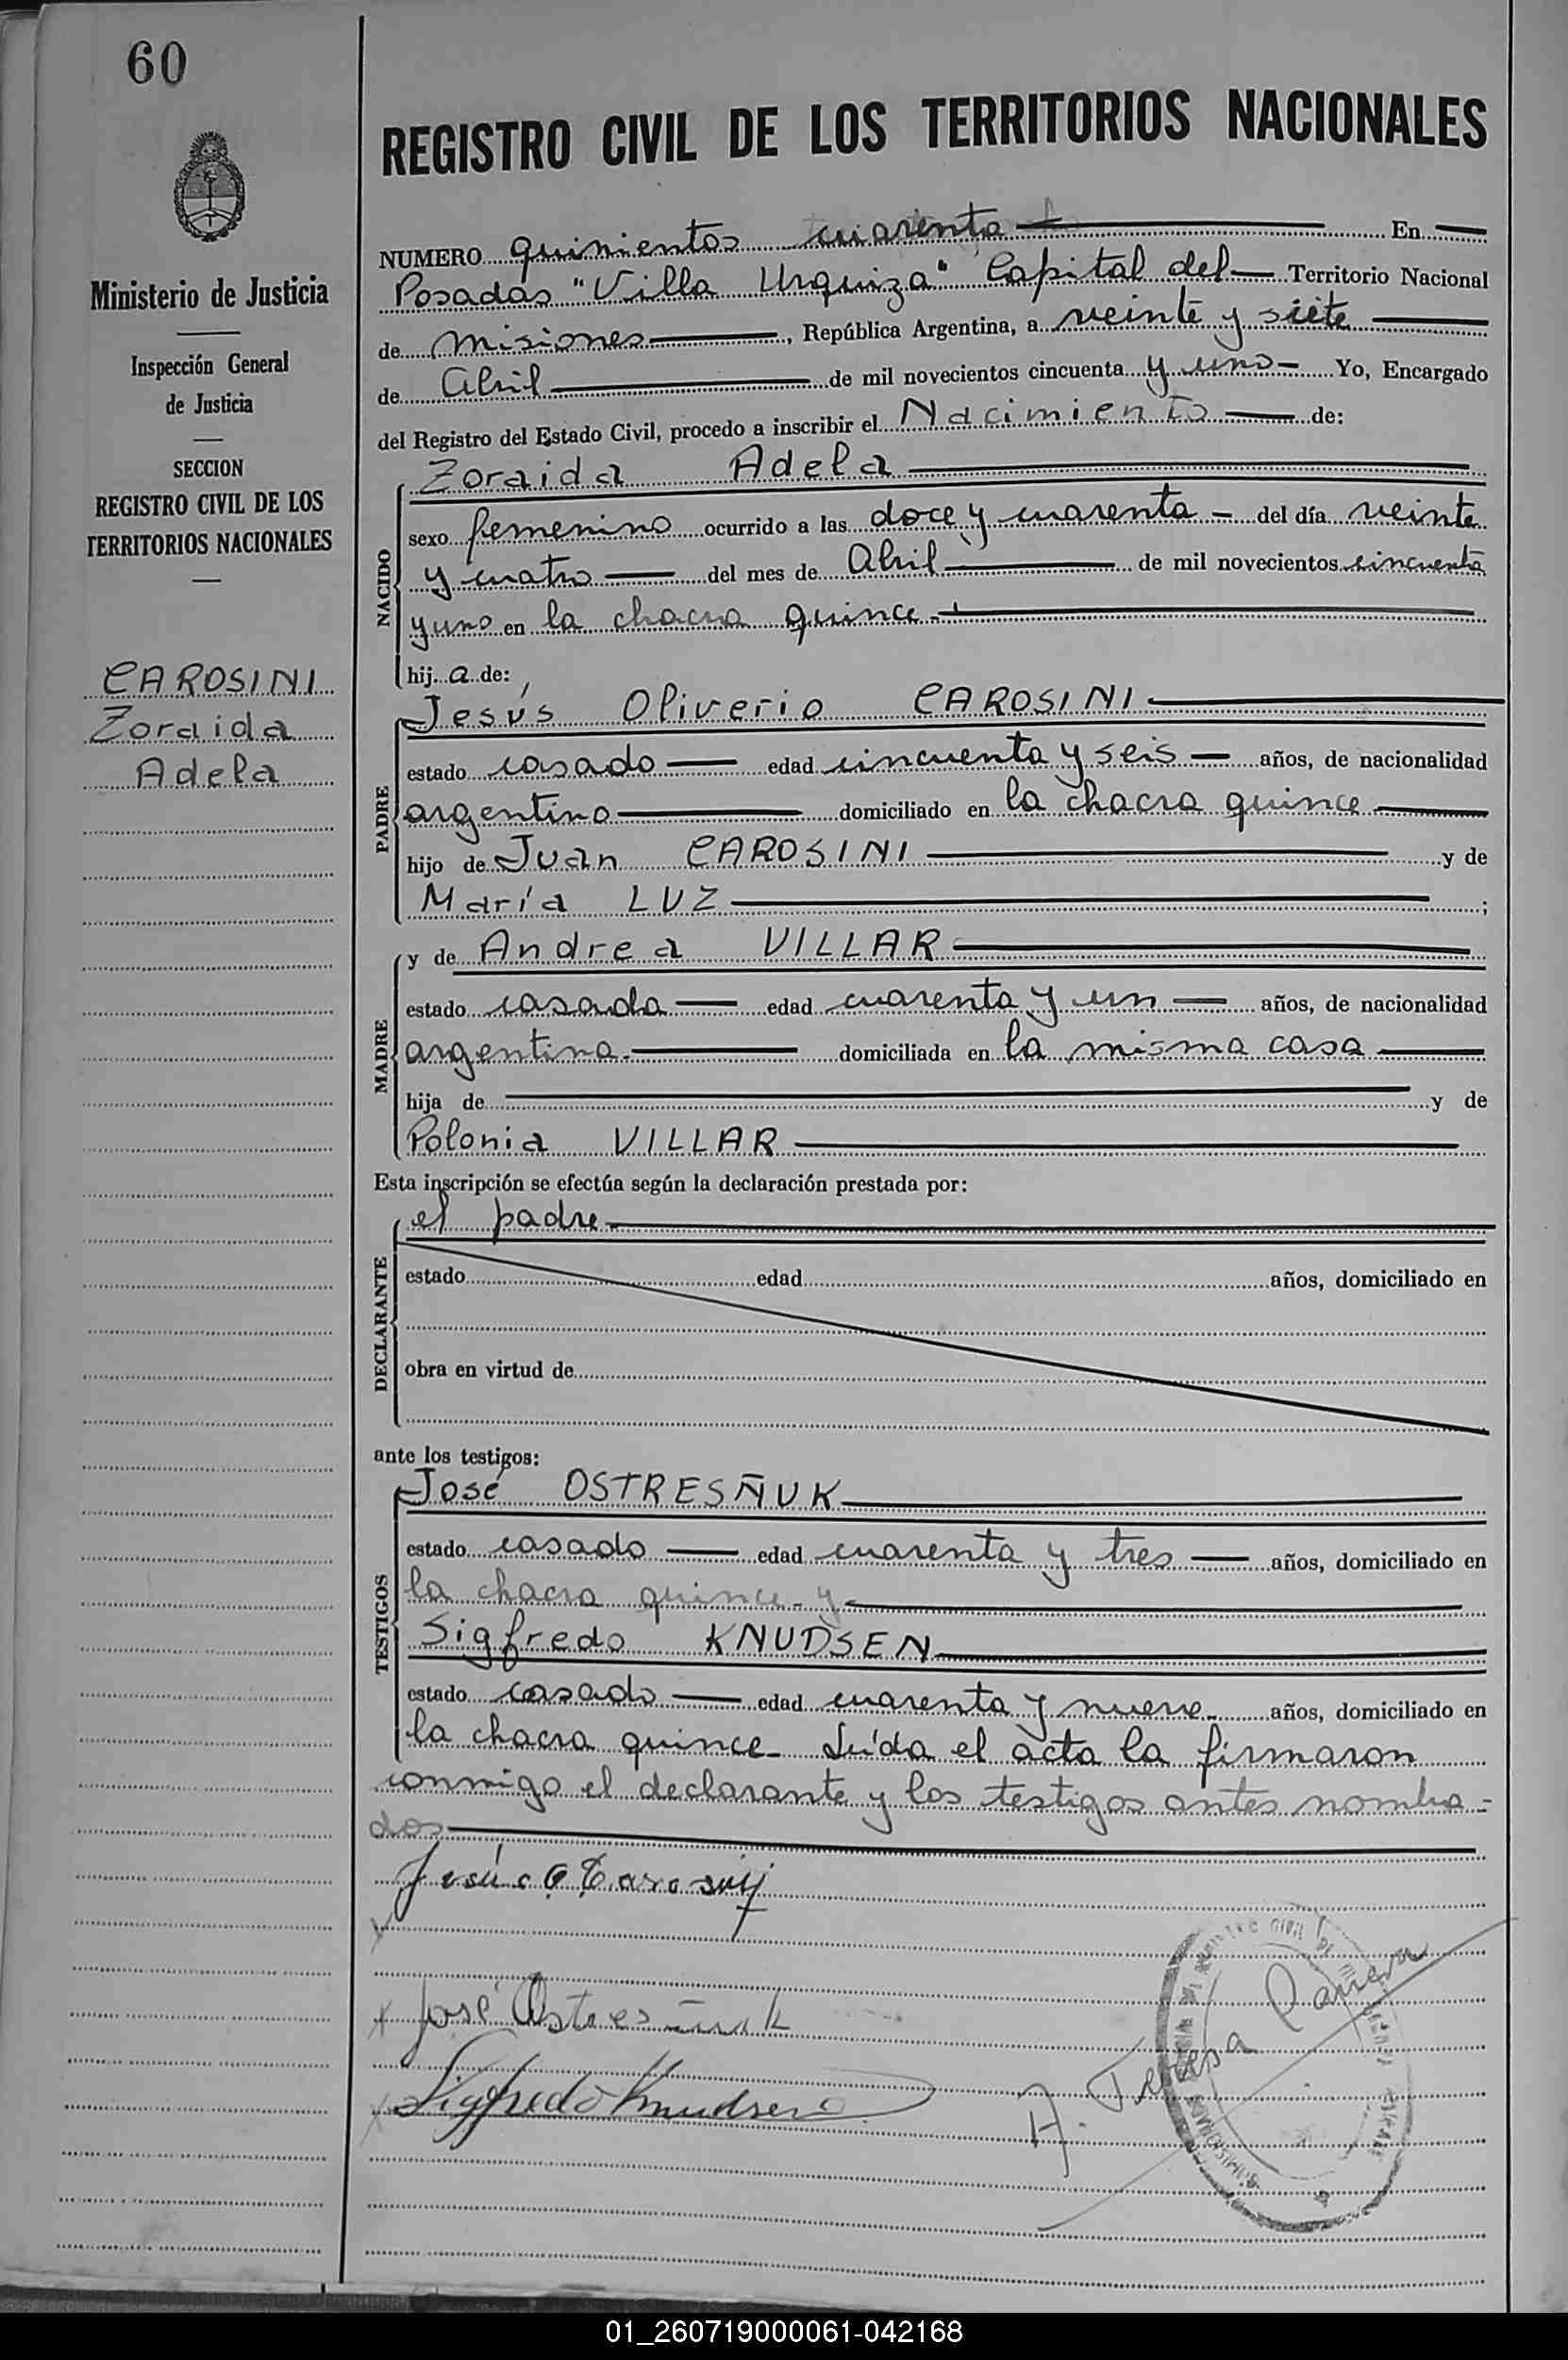 60
Ministerio de Justicia
Inspección General
de Justicia
SECCION
REGISTRO CIVIL DE LOS
TERRITORIOS NACIONALES
CAROSINI
Zoraida
Adela
REGISTRO CIVIL DE LOS TERRITORIOS NACIONALES
NUMERO quinientos cuarenta En
Posadas "Villa Urquiza" Capital del Territorio Nacional
de Misiones, República Argentina, a veinte y siete
de Abril de mil novecientos cincuenta y uno Yo, Encargado
del Registro del Estado Civil, procedo a inscribir el Nacimiento de:
NACIDO
Zoraida Adela
sexo femenino ocurrido a las doce y cuarenta del día veinte
y cuatro del mes de Abril de mil novecientos cincuenta
y uno en la chacra quince
hija de:
PADRE
Jesús Oliverio CAROSINI
estado casado edad cincuenta y seis años, de nacionalidad
argentino domiciliado en la chacra quince
hijo de Juan CAROSINI y de
María LUZ ;
MADRE
y de Andrea VILLAR
estado casada edad cuarenta y un años, de nacionalidad
argentina domiciliada en la misma casa
hija de y de
Polonia VILLAR
Esta inscripción se efectúa según la declaración prestada por:
DECLARANTE
el padre
estado edad años, domiciliado en
obra en virtud de
ante los testigos:
TESTIGOS
José OSTRESÑUK
estado casado edad cuarenta y tres años, domiciliado en
la chacra quince y
Sigfredo KNUDSEN
estado casado edad cuarenta y nueve años, domiciliado en
la chacra quince Leída el acta la firmaron
conmigo el declarante y los testigos antes nombra-
dos
Jesús O Carosini
José Ostresñuk
Sigfredo Knudsen
A. Teresa
01_260719000061-042168